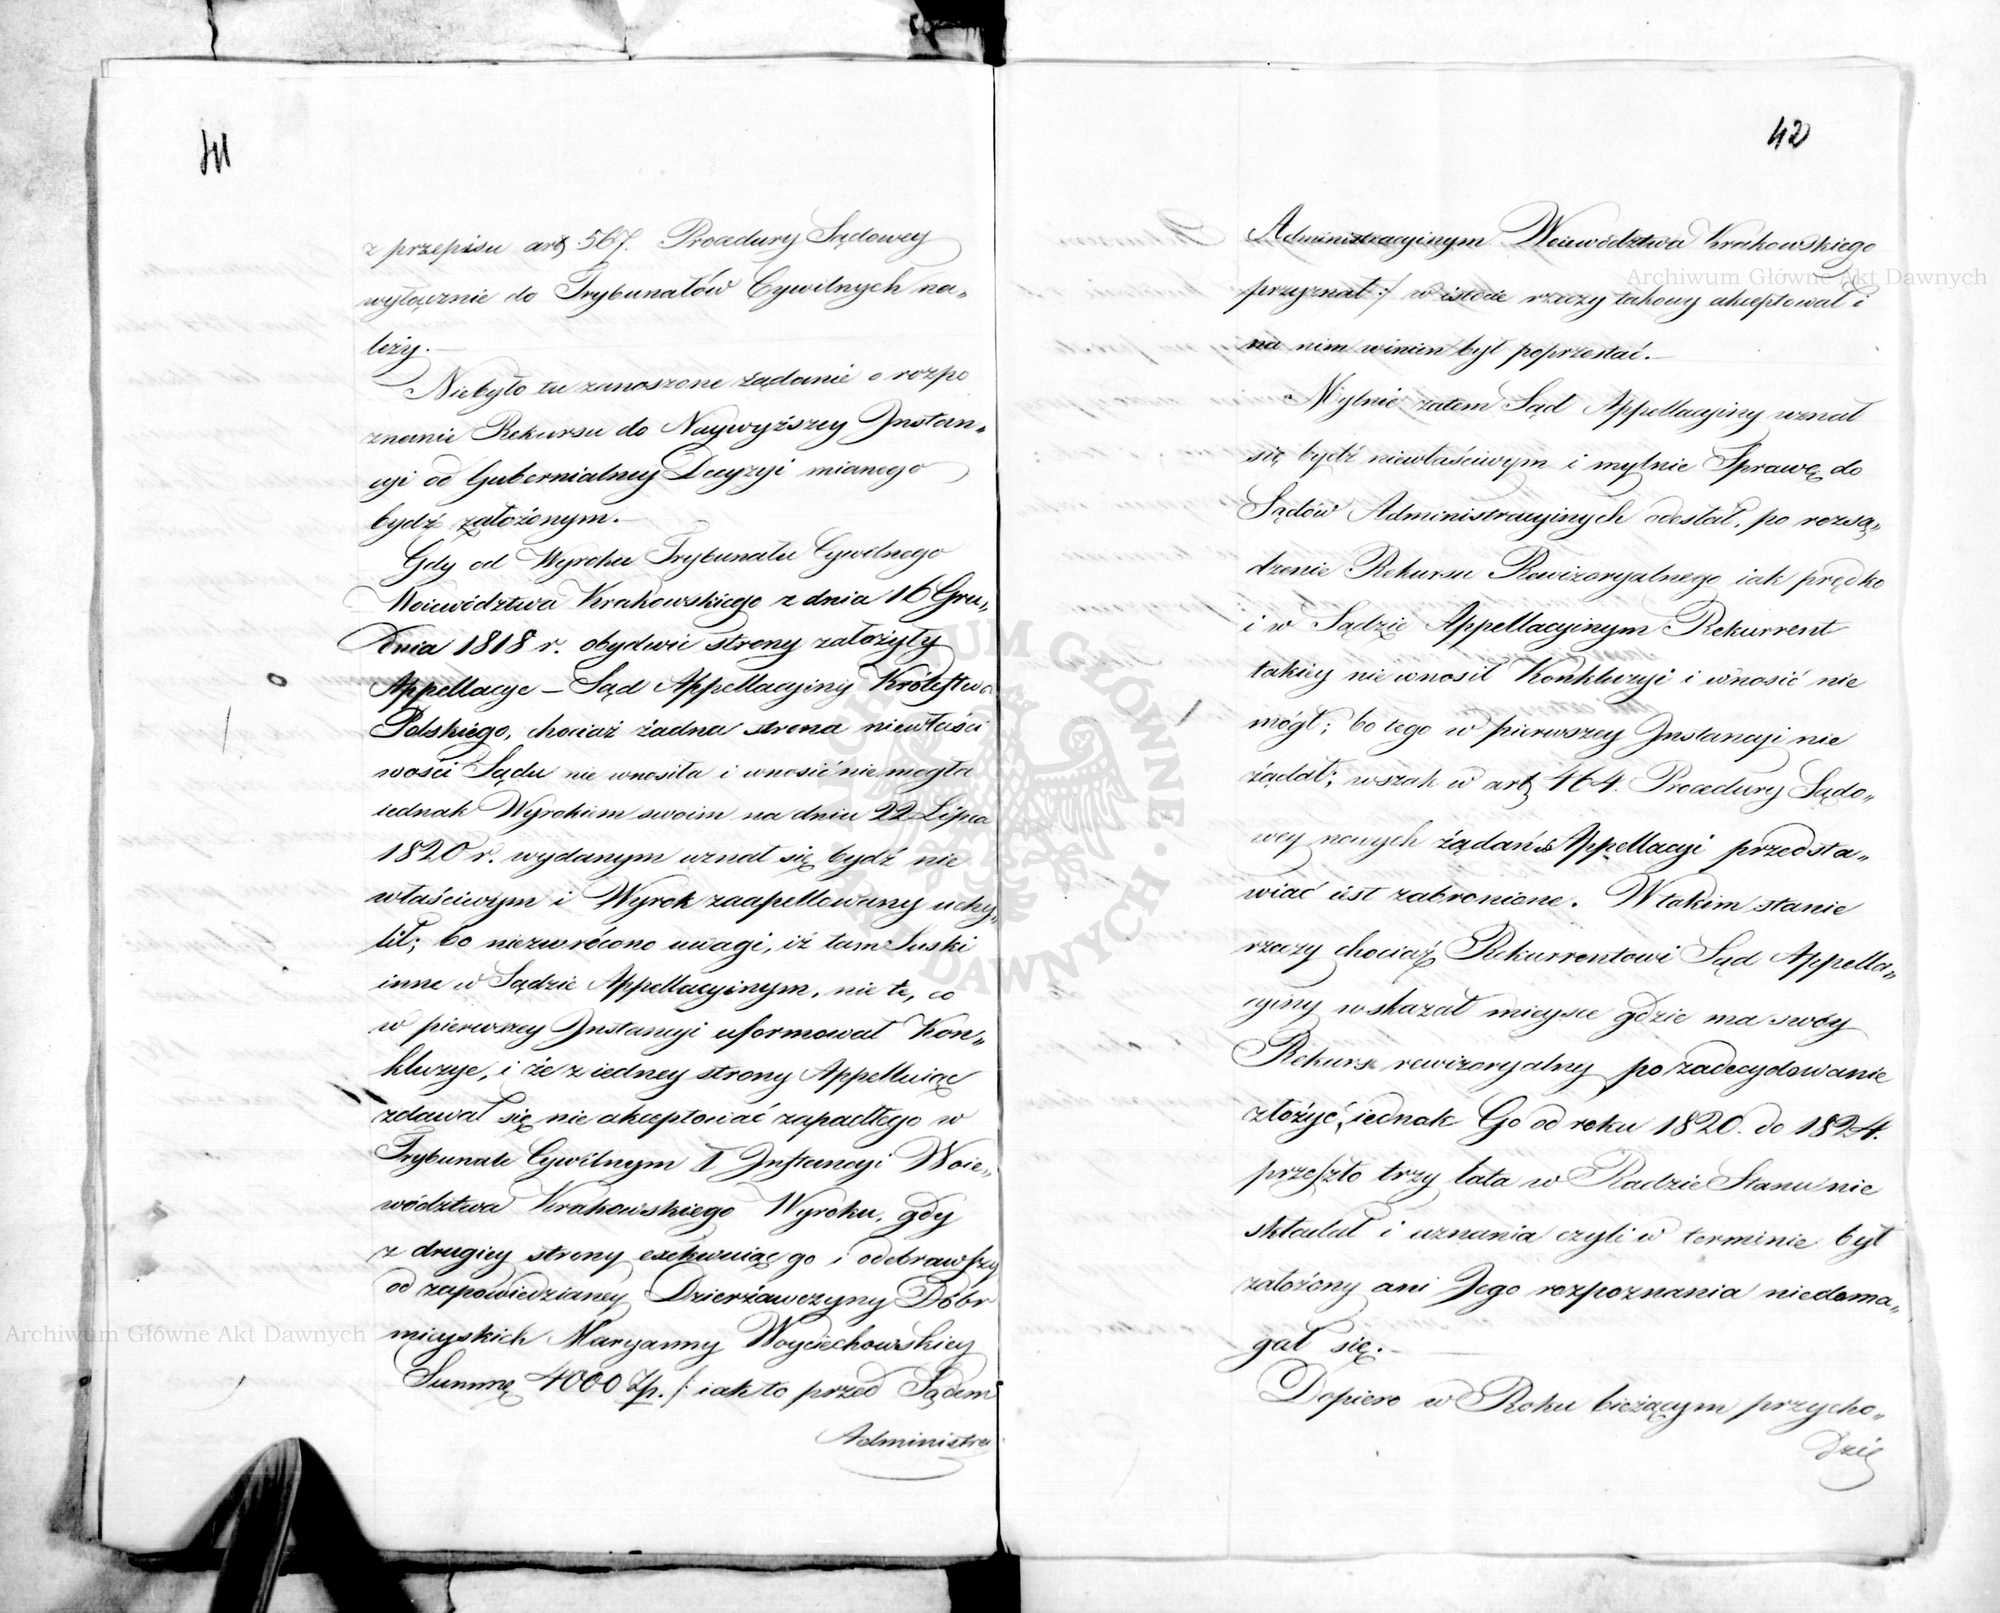 41
z przepisu art 567. Procedury Sądowey
wyłącznie do Trybunałów Cywilnych na„
leży.—
Niebyło tu zanoszone żądanie o rozpo
znanie Rekursu do Naywyższey Instan„
cyi od Gubernialney Decyzyi mianego
bydź założonym.—
Gdy od Wyroku Trybunału Cywilnego
Woiewództwa Krakowskiego z dnia 16 Gru„
dnia 1818 r. obydwie strony założyły
Appellacye — Sąd Appellacyiny Królestwa
Polskiego, chociaż żadna strona niewłaści
wości Sądu nie wnosiła i wnosić nie mogła
iednak Wyrokiem swoim na dniu 22 Lipca
1820 r. wydanym uznał się bydź nie
właściwym i Wyrok zaapellowany uchy„
lił; bo niezwrócono uwagi, iż tam Suski
inne w Sądzie Appellacyinym, nie te, co
w pierwszey Instancyi uformował Kon„
kluzye, i że z iedney strony Appelluiąc
zdawał się nie akceptować zapadłego w
Trybunale Cywilnym I Instancyi Woie„
wództwa Krakowskiego Wyroku, gdy
z drugiey strony exekwuiąc go i odebrawszy
od zapowiedzianey Dzierżawczyny Dóbr
mieyskich Maryanny Woyciechowskiey
Summę 4000 Zp. /: iak to przed Sądem
Administra
42
Administracyinym Woiewództwa Krakowskiego
przyznał :/ w istocie rzeczy takowy akceptował i
na nim winien był poprzestać.—
Mylnie zatem Sąd Appellacyiny uznał
się bydź niewłaściwym i mylnie Sprawę do
Sądów Administracyinych odesłał, po rozsą„
dzenie Rekursu Rewizoryalnego iak prędko
i w Sądzie Appellacyinym Rekurrent
takiey nie wnosił Konkluzyi i wnosić nie
mógł; bo tego w pierwszey Instancyi nie
żądał; wszak w art 464. Procedury Sądo„
wey nowych żądań w Appellacyi przedsta„
wiać iest zabronione. W takim stanie
rzeczy chociaż Rekurrentowi Sąd Appella„
cyiny wskazał mieysce gdzie ma swóy
Rekurs rewizoryalny po zadecydowanie
złożyć, iednak Go od roku 1820. do 1824.
przeszło trzy lata w Radzie Stanu nie
składał i uznania czyli w terminie był
założony ani Jego rozpoznania niedoma„
gał się.—
Dopiero w Roku bieżącym przycho„
dzi
Archiwum Główne Akt Dawnych
Archiwum Główne Akt Dawnych
ARCHIWUM GŁÓWNE AKT DAWNYCH